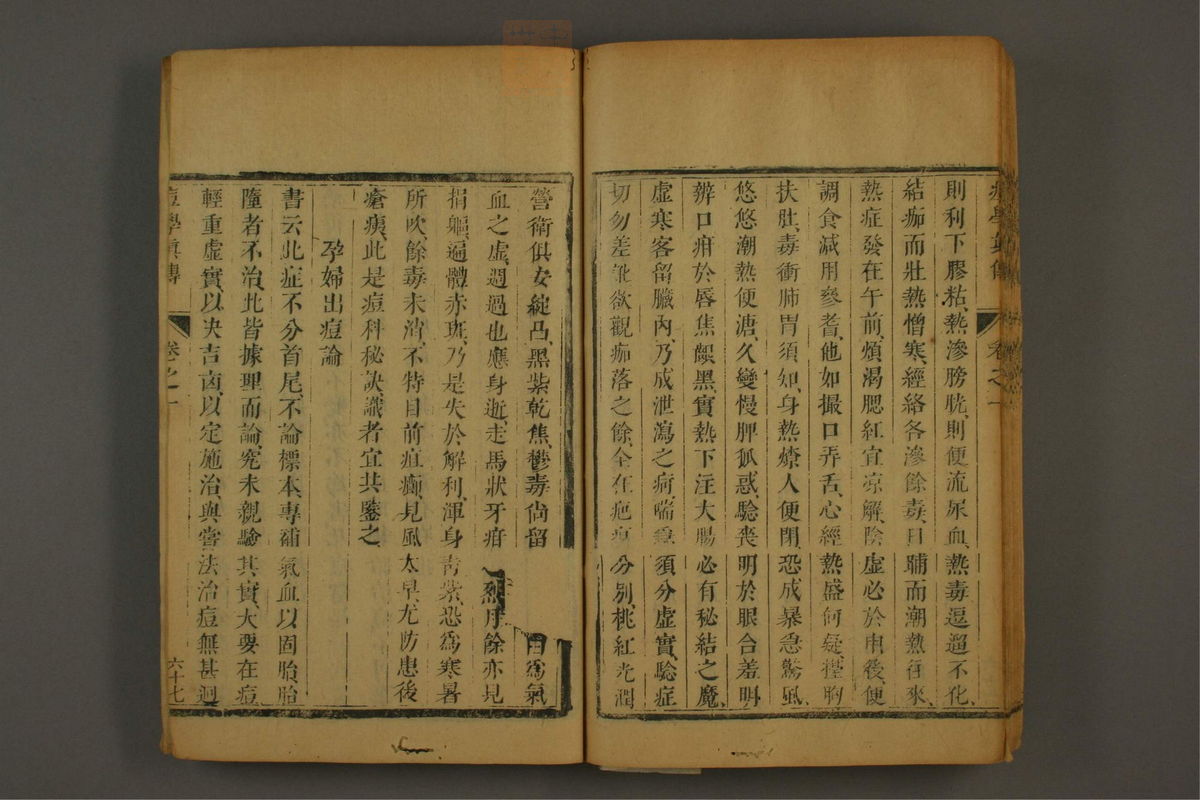 則利下膠粘、熱滲膀胱、則便流尿血、熱毒逗遛不化、
結痂而壯熱憎寒、經絡各滲餘毒、日晡而潮熱往來、
熱症發在午前、煩渴腮紅宜凉解、陰虛必於申後、便
調食減用參耆、他如撮口弄舌、心經熱盛何疑、摟胸
扶肚、毒衝肺胃須知、身熱燎人便閉、恐成暴急驚風、
悠悠潮熱便溏、久變慢脾狐惑、驗喪明於眼合羞明
辨口疳於唇焦齦黑、實熱下注大腸、必有秘結之魔、
虛寒客留臟內、乃成泄瀉之痾、喘急須分虛實、驗症
切勿差訛、欲觀痂落之餘、全在疤痕分別、桃紅光潤
營衛俱安、綻凸、黑紫乾焦、鬱毒尚留白爲氣
血之虛、週過也應身逝、走馬狀牙疳月餘亦見
捐軀、遍體赤斑、乃是失於解利、渾身青紫、恐爲寒暑
所吹、餘毒未淸、不特目前疽癤、見風太早、尤防患後
瘡痍、此是痘科秘訣、識者宜共鑒之
孕婦出痘論
書云此症不分首尾、不論標本、專補氣血以固胎、胎
墮者不治、此皆據理而論、究未親驗其實、大要在痘
輕重虛實、以决吉凶、以定施治、與嘗法治痘無甚迥
痘學眞傳 卷之一 六十七